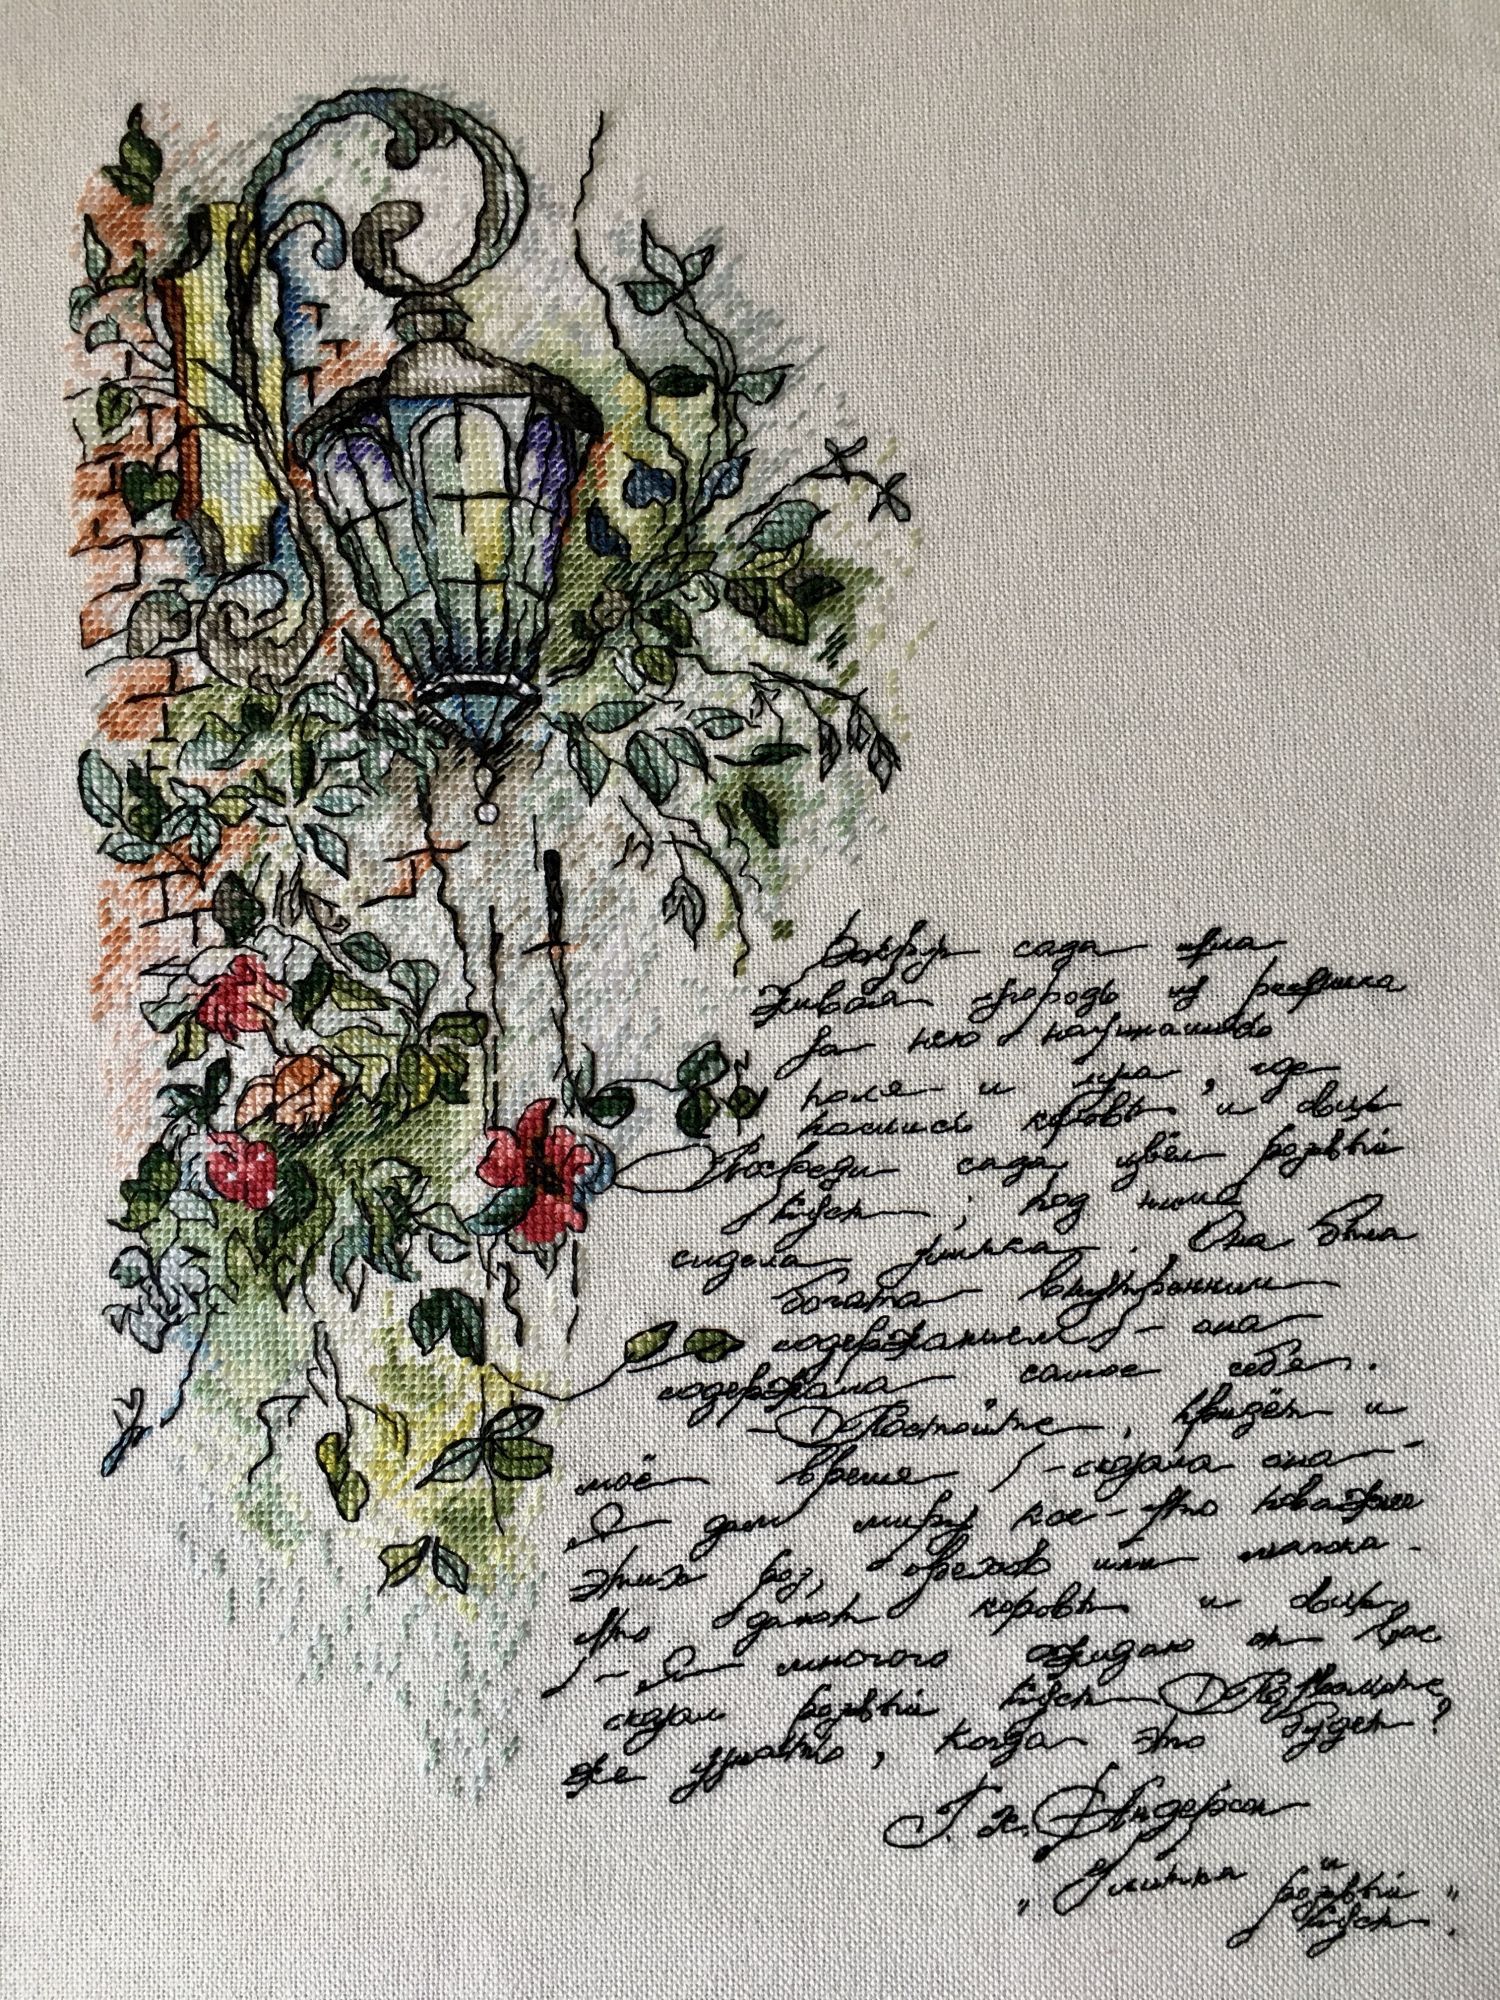 Вокруг сада шла
живая изгородь из орешника
за нею начинались
поля и луга, где
паслись коровы и овцы
Посреди сада цвёл розовый
куст, под ним
сидела улитка. Она была
богата внутренним
содержанием, - она
содержала самое себя.
- Постойте, придёт и
моё время, - сказала она -
Я дам миру кое-что поважнее
этих роз, орехов или молока
что дают коровы и овцы
- Я многого ожидаю от вас
сказал розовый куст Позвольте
же узнать, когда это будет?
Г. Х. Андерсен
„Улитка и
розовый
куст".